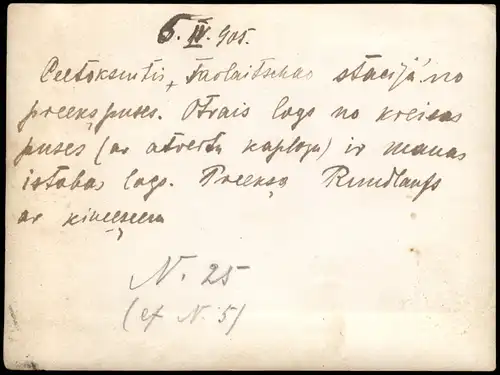 6. IV. 905.
Taolaitschao stacijā no
preekšpuses. Otrais logs no kreisas
puses (ar atvertu kaplogu) ir manas
istabas logs. Preekšā Rundlaufs
ar kineeseem
N. 25
(cf N. 5)